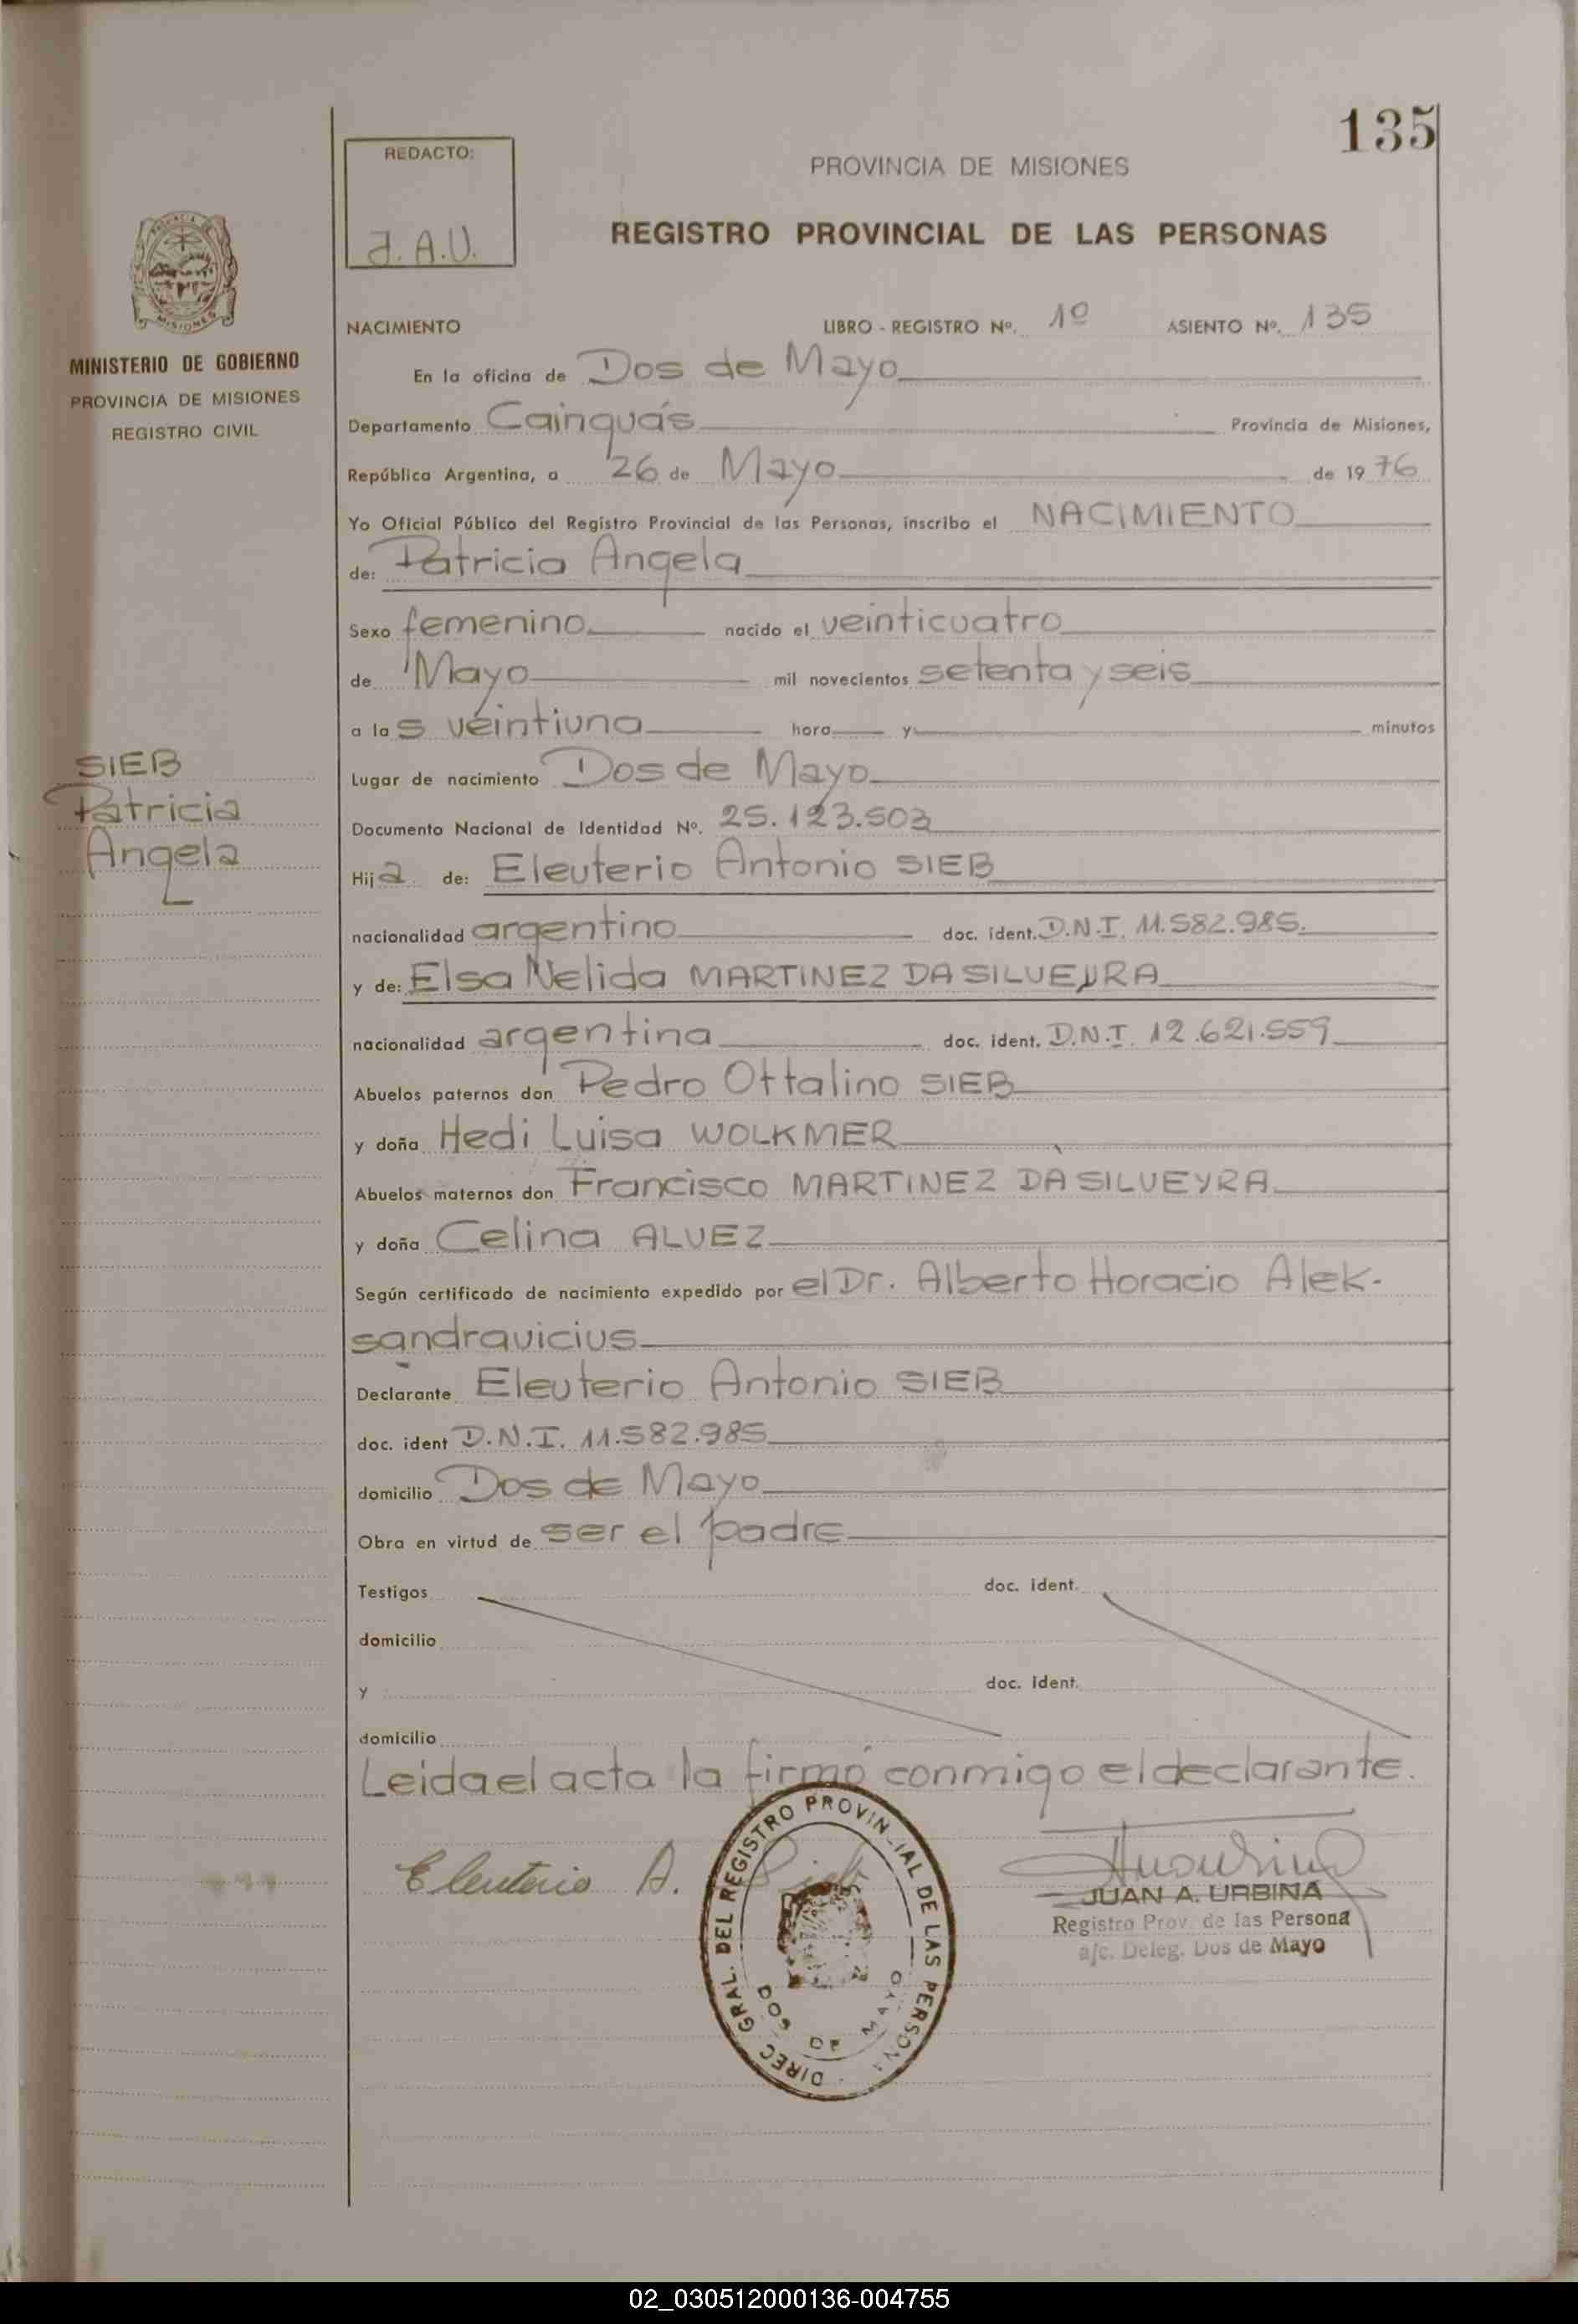 135
REDACTO:
J.A.U.
PROVINCIA DE MISIONES
REGISTRO PROVINCIAL DE LAS PERSONAS
PROVINCIA DE
MISIONES
MINISTERIO DE GOBIERNO
PROVINCIA DE MISIONES
REGISTRO CIVIL
NACIMIENTO LIBRO - REGISTRO Nº. 1º ASIENTO Nº. 135
En la oficina de Dos de Mayo
Departamento Cainguás Provincia de Misiones,
República Argentina, a 26 de Mayo de 1976
Yo Oficial Público del Registro Provincial de las Personas, inscribo el NACIMIENTO
de: Patricia Angela
Sexo femenino nacido el veinticuatro
de Mayo mil novecientos setenta y seis
a las veintiuna hora y minutos
SIEB
Patricia
Angela
Lugar de nacimiento Dos de Mayo
Documento Nacional de Identidad Nº. 25.123.503
Hija de: Eleuterio Antonio SIEB
nacionalidad argentino doc. ident. D.N.I. 11.582.985.
y de: Elsa Nelida MARTINEZ DA SILVEYRA
nacionalidad argentina doc. ident. D.N.I. 12.621.559
Abuelos paternos don Pedro Ottalino SIEB
y doña Hedi Luisa WOLKMER
Abuelos maternos don Francisco MARTINEZ DA SILVEYRA
y doña Celina ALVEZ
Según certificado de nacimiento expedido por el Dr. Alberto Horacio Alek-
sandravicius
Declarante Eleuterio Antonio SIEB
doc. ident D.N.I. 11.582.985
domicilio Dos de Mayo
Obra en virtud de ser el padre
Testigos doc. ident.
domicilio
y doc. ident.
domicilio
Leida el acta la firmó conmigo el declarante.
Eleuterio A. Sieb
DIREC. GRAL. DEL REGISTRO PROVINCIAL DE LAS PERSONAS
DOS DE MAYO
JUAN A. URBINA
Registro Prov. de las Persona
a/c. Deleg. Dos de Mayo
02_030512000136-004755